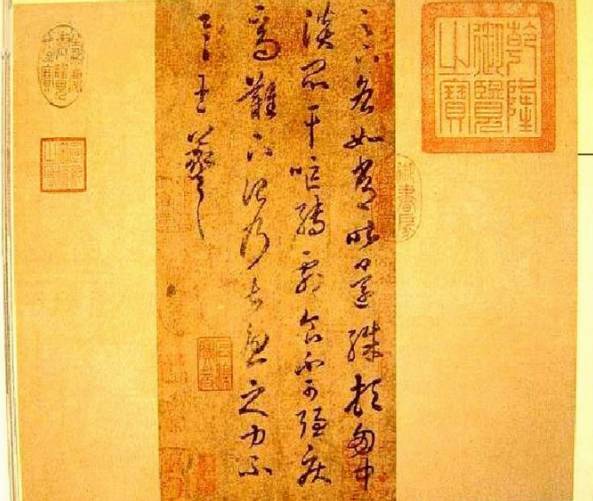 乾隆御覽之寶
足下各如常昨還殊頓匈中
淡悶干嘔轉劇食不可強疾
高難下治乃甚憂之力不
具王羲之